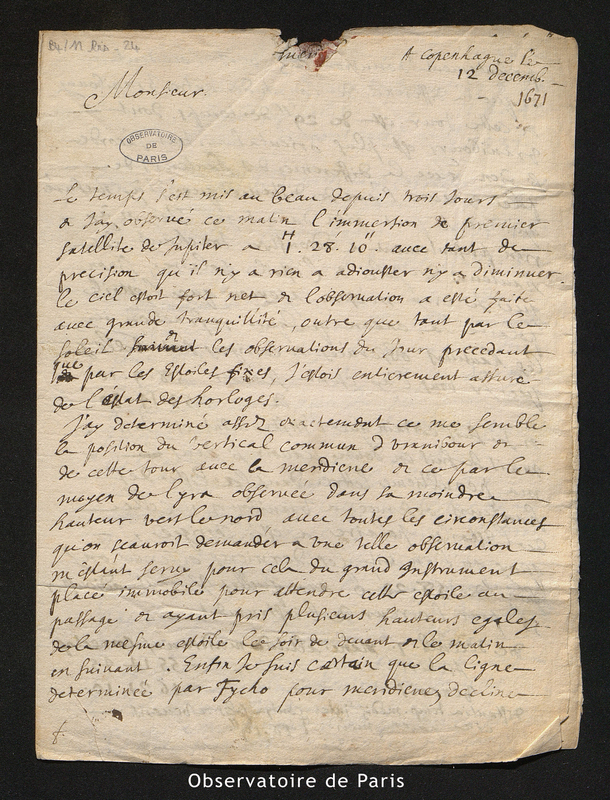 A copenhague le
12 decemb.
1671
Monsieur.
OBSERVATOIRE
DE
PARIS
Le temps s'est mis au beau depuis trois Jours
& J'ay observé ce matin l'immersion du premier
satellite de Jupiter a 1.H 28. 16" avec tant de
precision qu'il n'y a rien a adiouster n'y a diminuer
le ciel estoit fort net & l'observation a esté faite
avec grande tranquillité, outre que tant par le
soleil & les observations du Jour precedant
que par les Estoiles fixes, J'estois entierement assuré
de l'estat des horloges.
J'ay determiné assez exactement ce me semble
la position du vertical commun d'Uranibour &
de cette tour avec la meridiene & ce par le
moyen de lyra observée dans sa moindre
hauteur vers le nord avec toutes les circonstances
qu'on scauroit demander a une telle observation
m'estant servi pour cela du grand Instrument
placé immobile pour attendre cette estoile au
passage & ayant pris plusieurs hauteurs egales
de la mesme estoile le soir de devant & le matin
en suivant. Enfin Je suis certain que la ligne
determinée par Tycho pour meridiene, decline
Observatoire de Paris